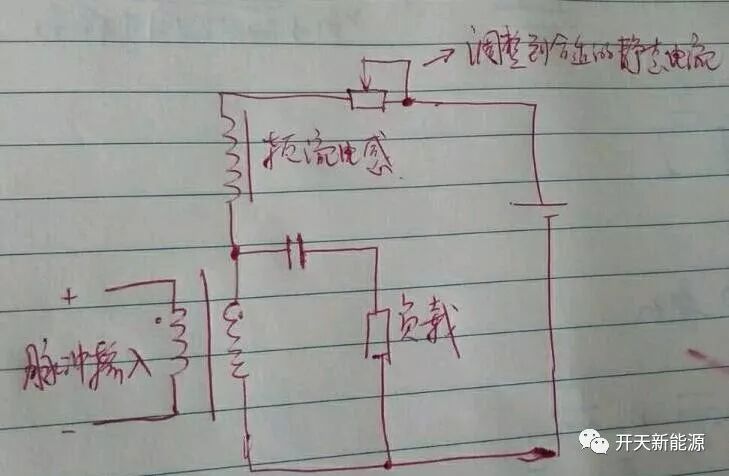 调整到合适的静态电流
扼流电感
+
负载
脉冲输入
-
开天新能源